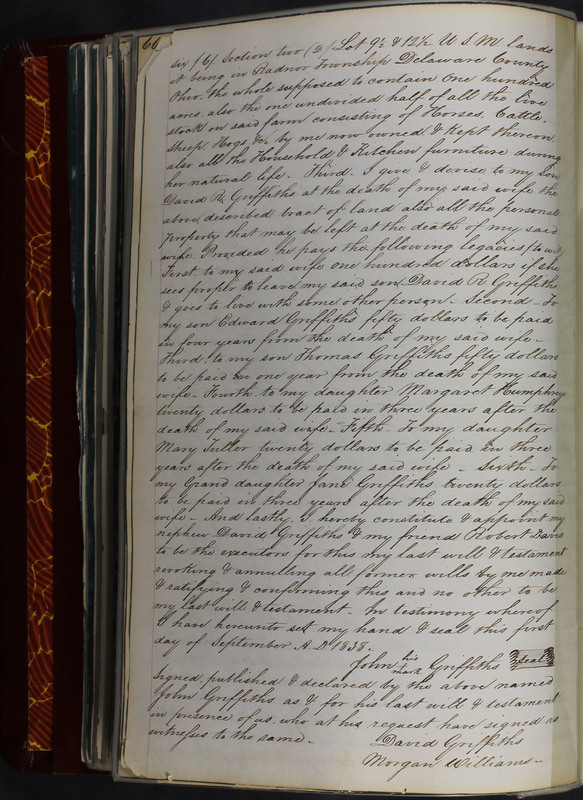 66
six (6) Section two (2) Lot 9½ & 12½ U. S. M. lands
it being in Radnor Township Delaware County
Ohio, the whole supposed to contain One hundred
acres also the one undivided half of all the live
stock on said farm consisting of Horses, Cattle,
Sheep, Hogs &c. by me now owned & Kept thereon
also all the Household & Kitchen furniture during
her natural life - Third. I give & devise to my Son
David R. Griffiths at the death of my said wife the
above described tract of land also all the personal
Property that may be left at the death of my said
wife. Provided he pays the following legacies (to wit)
First to my said wife one hundred dollars if she
sees proper to leave my said son David R Griffiths
& goes to live with some other person - Second - To
my son Edward Griffiths fifty dollars to be paid
in four years from the death of my said wife -
Third to my son Thomas Griffiths fifty dollars
to be paid in one year from the death of my said
wife - Fourth to my daughter Margaret Humphreys
twenty dollars to be paid in three years after the
death of my said wife - Fifth - To my daughter
Mary Tuller twenty dollars to be paid in three
years after the death of my said wife - Sixth - To
my Grand daughter Jane Griffiths twenty dollars
to be paid in three years after the death of my said
wife - And lastly, I hereby constitute & appoint my
nephew David Griffiths & my friend Robert Davis
to be the executors for this my last will & testament
revoking & annulling all former wills by me made
& ratifying & confirming this and no other to be
my last will & testament - In testimony whereof
I have hereunto set my hand & seal this first
day of September A. D 1838.
John his mark Griffiths Seal
Signed, published & declared by the above named
John Griffiths as & for his last will & testament
in presence of us who at his request have signed as
witness to the same -
David Griffiths
Morgan Williams -